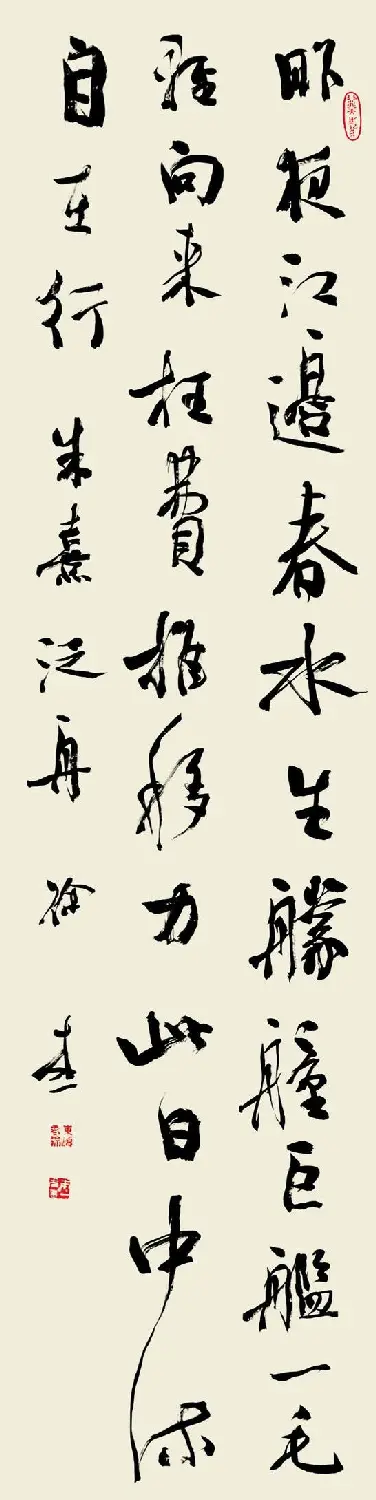 昨夜江邊春水生艨艟巨艦一毛
輕向來枉費推移力此日中流
自在行 朱熹泛舟 徐